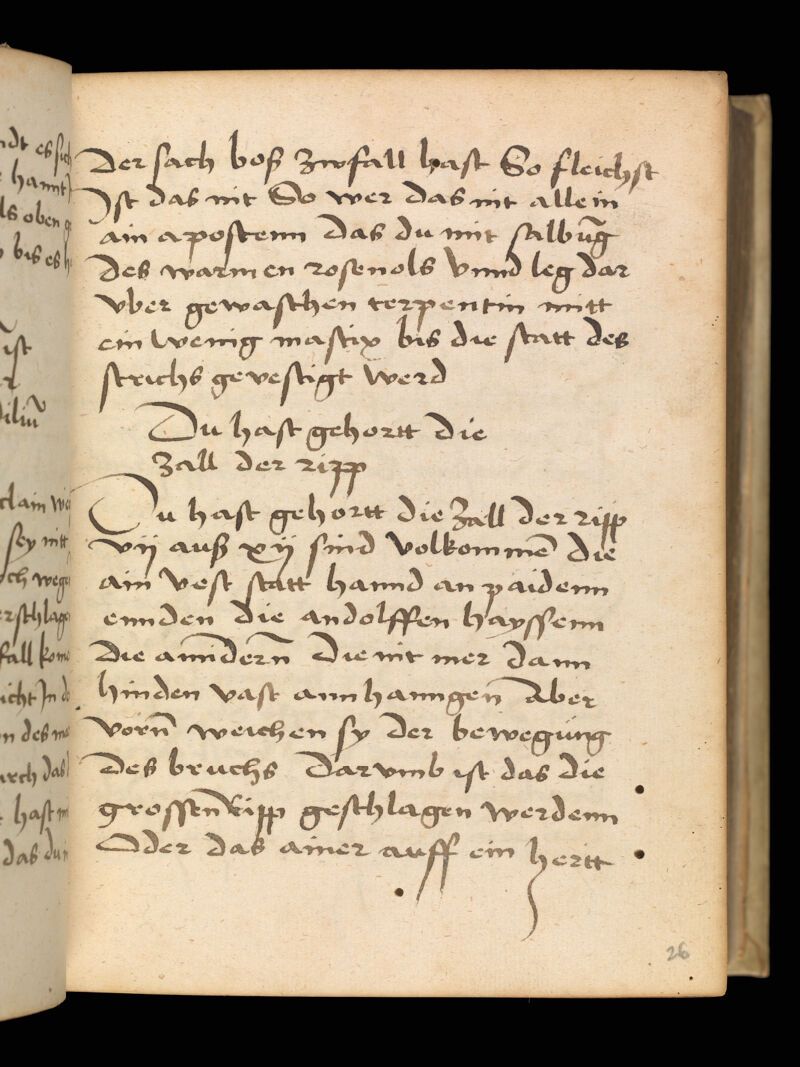 der sach boß zwfall hast So fleichst
Ist das nit So wer das nit allein
ain apostenn das du mit salbūg
des warmen rosenols vnnd leg dar
vber gewaschen terpentin mitt
ein wenig mastix bis die statt des
strichs gevestigt werd
Du hast gehortt die
zall der ripp
Du hast gehortt die zall der ripp
vij auß xij sind volkommē die
ain vest statt hannd an paidenn
ennden die andolffen hayssenn
die anndern̄ die nit mer dann
hinden vast ann hanngen̄ Aber
vorn̄ weichen sy der bewegung
des bruchs darvmb ist das die
grossenn̄ ripp geschlagen werdenn
Oder das ainer auff ein hertt
26